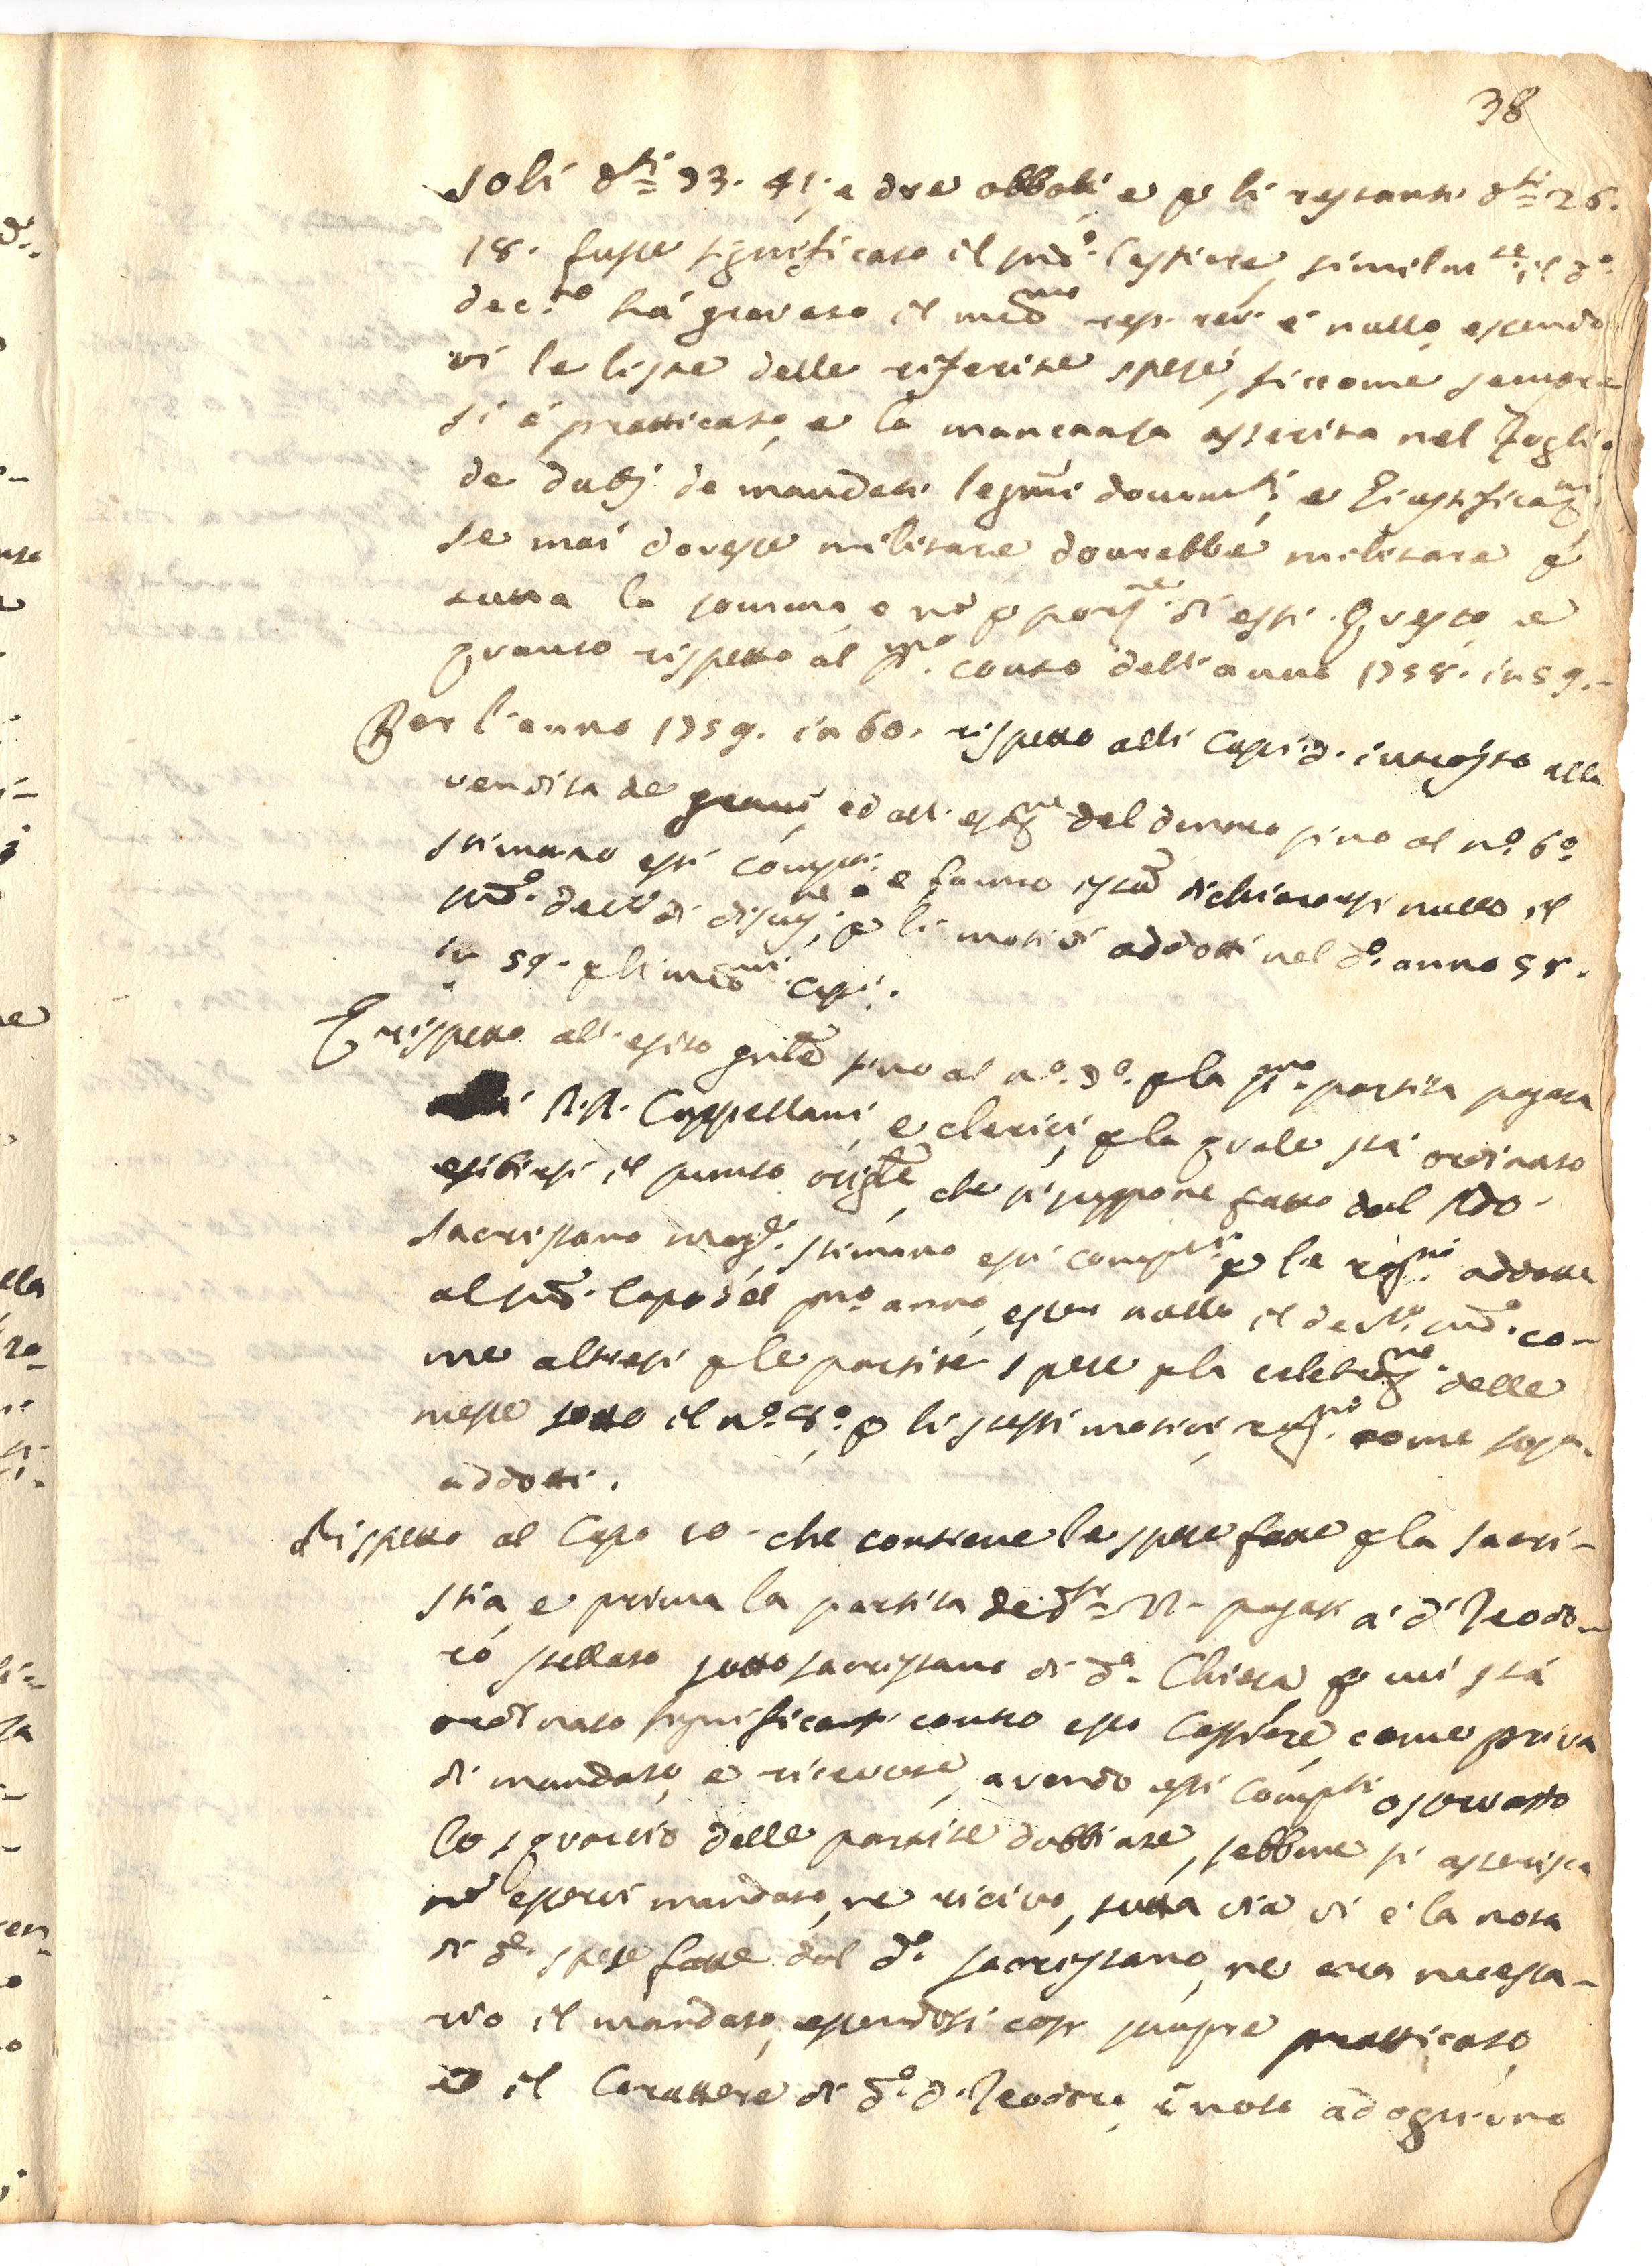 38
soli d.ti 73. 41, e due obboli, e p li restanti d.ti 26.
18. fusse significato il sud.o Cassiere, similm.te il d.o
dec.to há gravato il med.mo e nullo, essendo
vi le liste delle riferite spese, siccome sempre
si é pratticato, e la mancanza asserita nel foglio
de dubj de mandati legmi docum.ti, e Giustificaz.ni
se mai dovesse militare dovrebbe militare p
tutta la somma, e no p porz.ne di essi. Questo, e
quanto rispetto al p.mo conto dell'anno 1758. in 59.-
Per l'anno 1759. in 60. rispetto alli Capi d'introito alla
vendita de grani, ed all' esaz.ne del denaro sino al n.o 6.o
stimano essi comp.ti e fanno ista dichiararsi nullo il
sud.o decto di discuss.ne, p li motivi addotti nel d.o anno 58.
in 59. p li med.mi capi.
E rispetto all' esito gnle sino al n.o 7.o p la p.ma partita pagata
R.R. Cappellani, e clerici, p la quale stá ordinato
esibirsi il punto origle, che si suppone fatto dal Rdo
Sacristano mag.e, stimano essi comp.ti p le rag.ni addotte
al sud.o Capo del p.mo anno, esser nullo il dec.to sud.o co-
me altresi p le partite spese p la celebraz.ne delle
messe sotto il n.o 8.o p li stessi motivi, rag.ni come sopra
addotti.
Rispetto al Capo 10. che contiene le spese fatte p la sacri-
stia, e prima la partita de d.ti 22- pagati á D. Teodo-
ro stellato sotto sacristano di d.a Chiesa, p cui stá
ordinato significarsi contro esso Cassiere, come priva
di mandato, e ricevute, avendo essi Comp.ti osservatto
lo squarcio delle partite dubbiate, sebbene si asserisca
no esservi mandato, ne ricivo, tutta via vi é la nota
di d.e spese fatte dal d.o sacristano, ne era necessa-
rio il mandato, essendosi cosi sempre pratticato,
e il Carattere di d.o D. Teodoro, é noto ad ogni uno